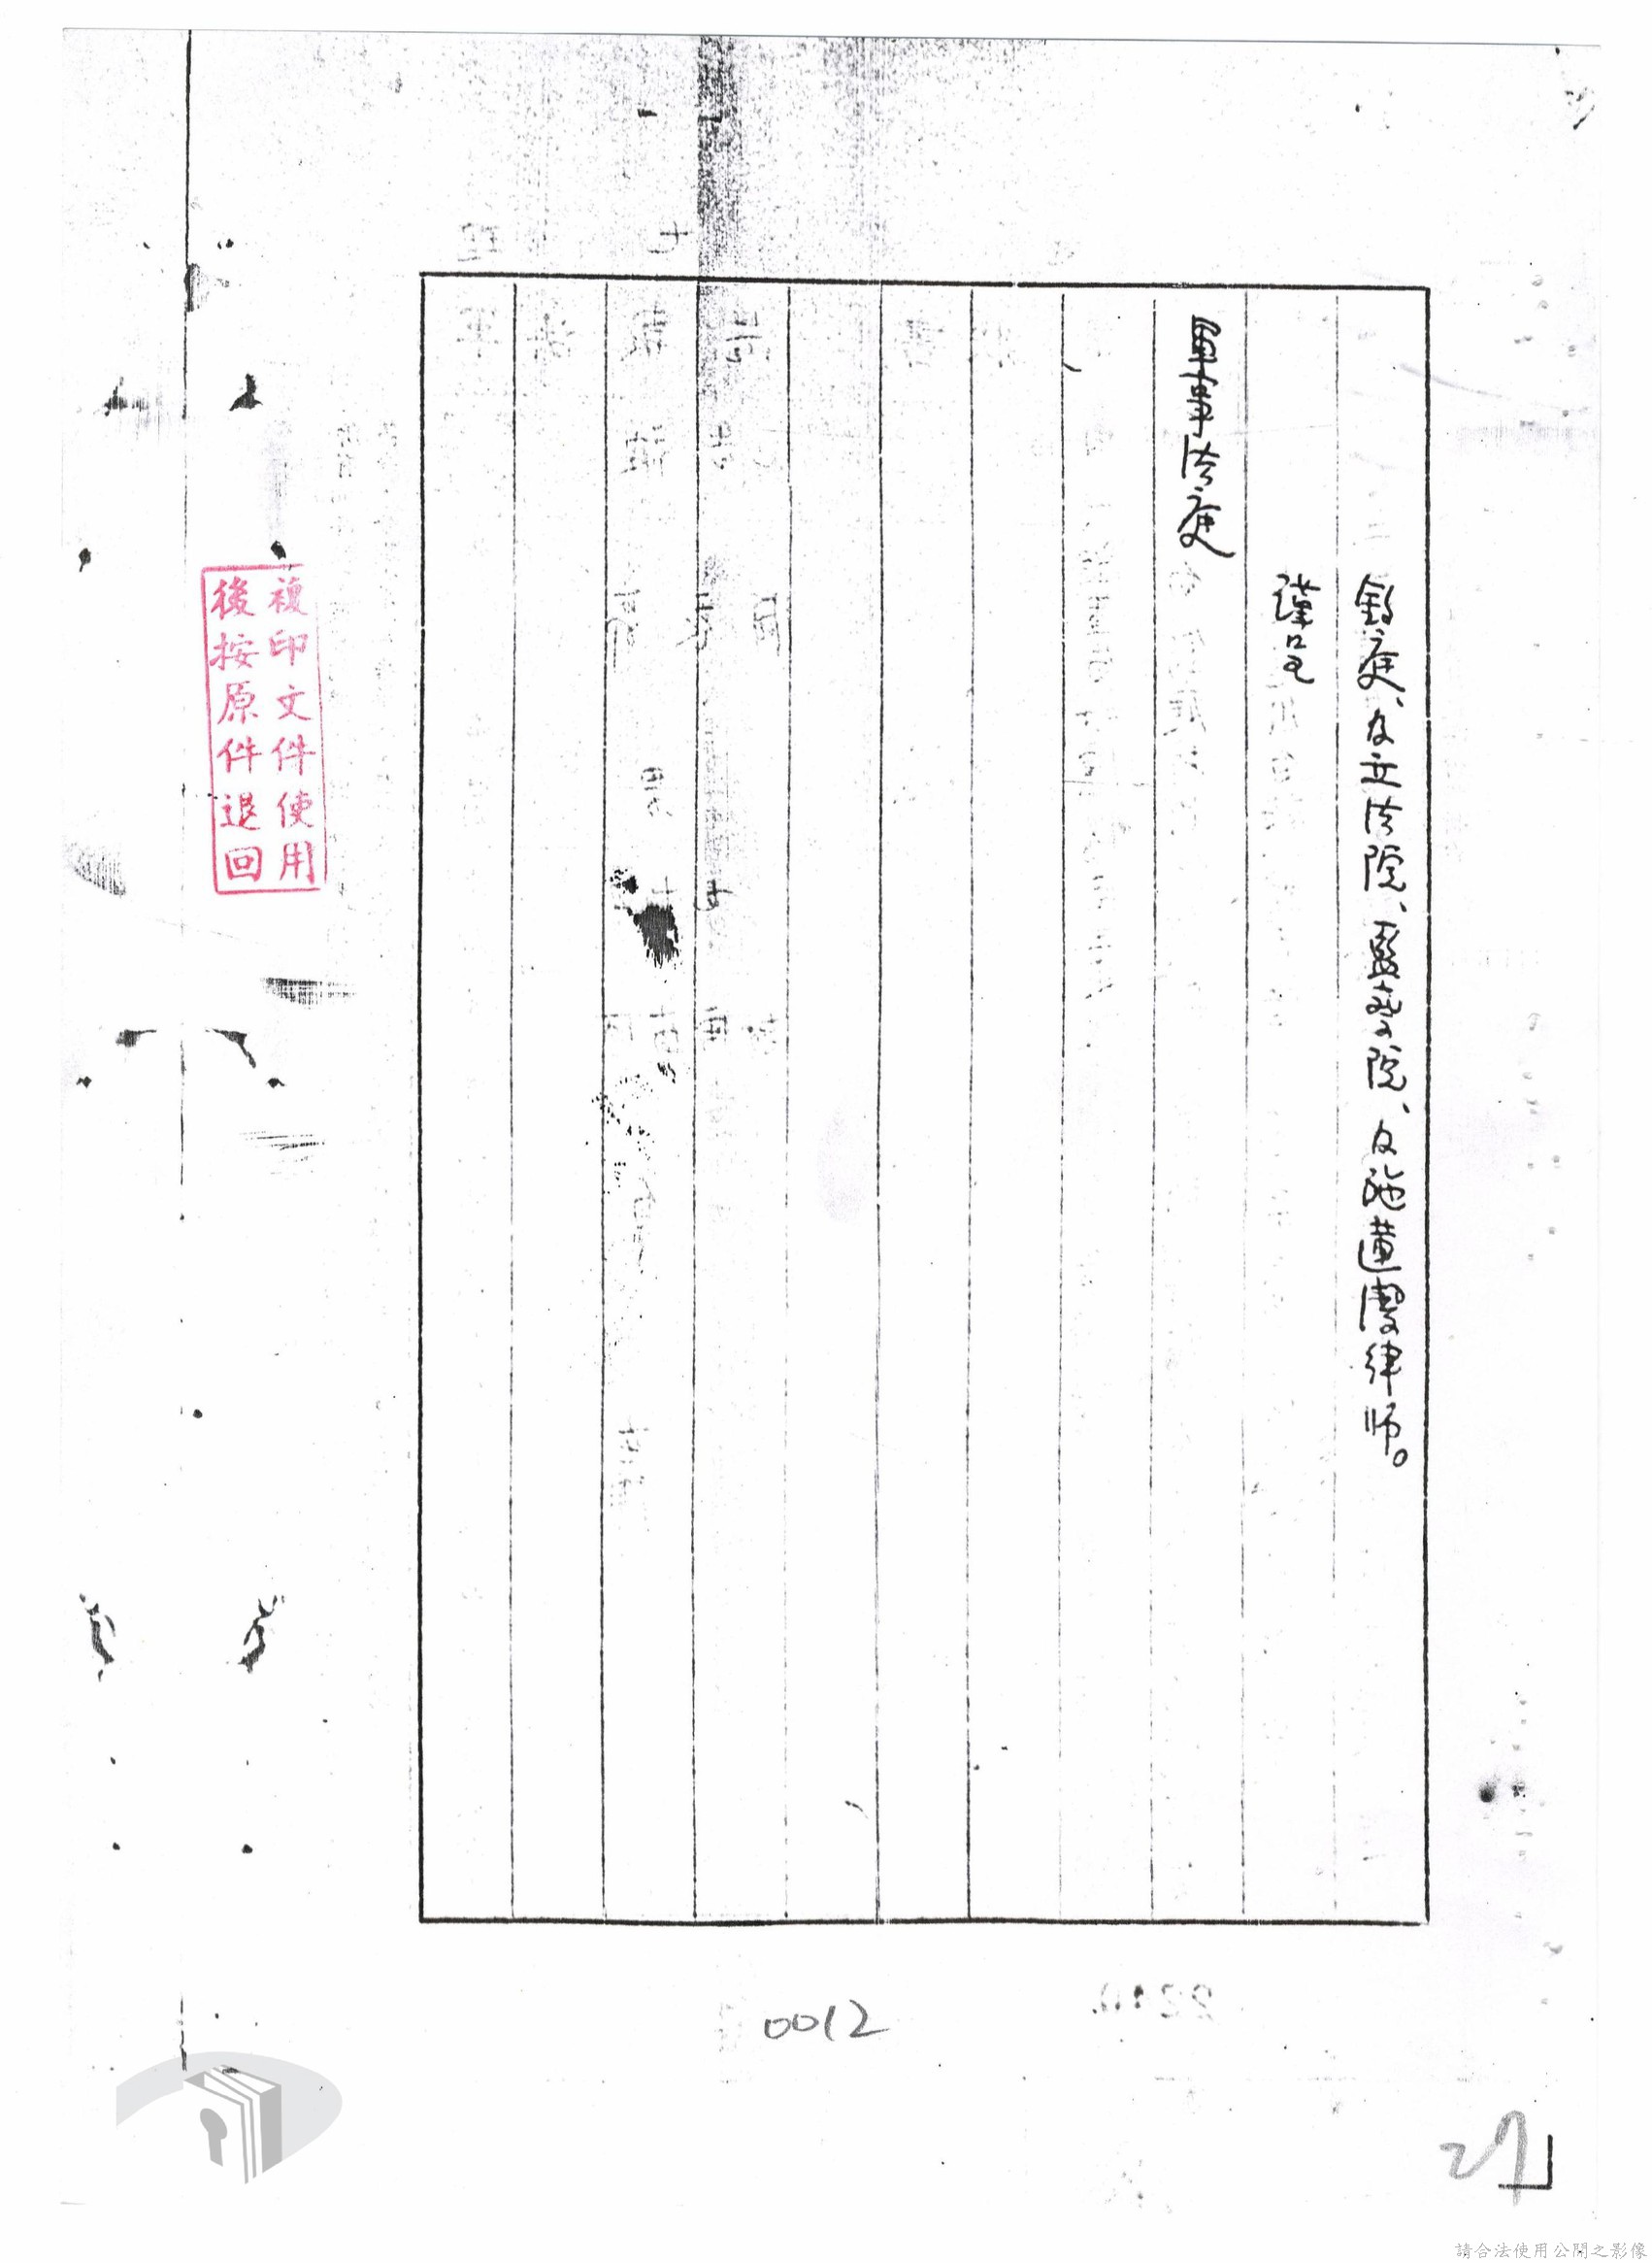 鈞庭、及立法院、監察院、及施蓮潔律师。
謹呈
軍事法庭
複印文件使用
後按原件退回
0012
27
請合法使用公開之影像